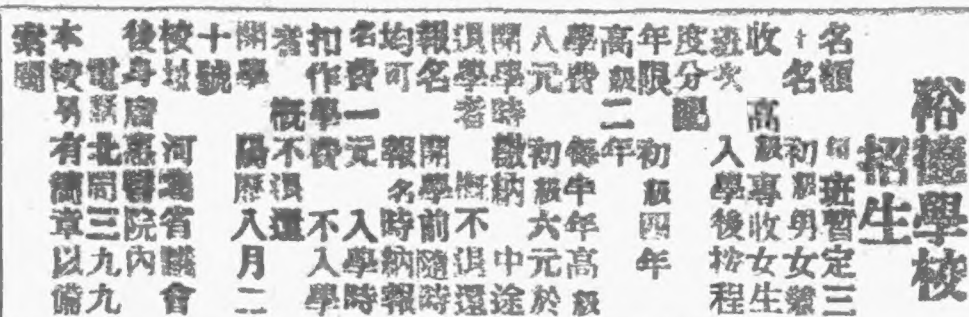 裕德學校
招生
名額 每班暫定三
十名 初級男女兼
收 高級專收女生
班次 入學後按程
度分配
年限 初級四年
高級二年
學費 每半年高級
八元 初級六元於
開學時繳納 中途
退學者 概不退還
報名 開學前隨時
均可 報名時納報
名費一元 入學時
扣作學費 不入學
者 概不退還
開學 陽歷八月二
十號
校址 河北省議會
後身唐惠醫院內
電話北局三九九
本校另有簡章以備
索閱